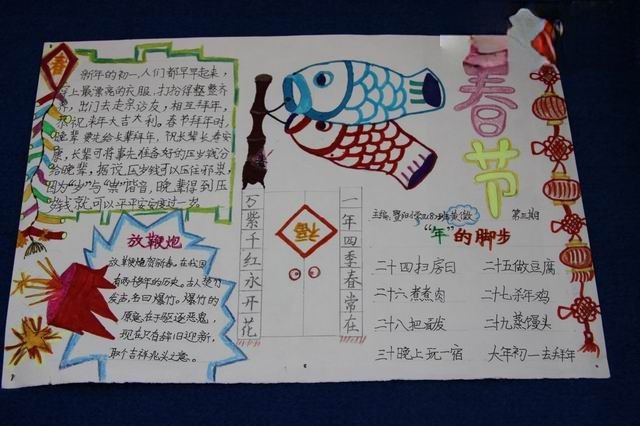 春
新年的初一,人们都早早起来,
穿上最漂亮的衣服,打扮得整整齐
齐,出门去走亲访友,相互拜年,
恭祝来年大吉大利。春节拜年时,
晚辈要先给长辈拜年,祝长辈长寿安
康,长辈可将事先准备好的压岁钱分
给晚辈,据说压岁钱可以压住邪祟,
因为"岁"与"祟"谐音,晚辈得到压
岁钱就可以平平安安度过一岁。
放鞭炮
放鞭炮贺新春,在我国
有两千多年的历史。古人焚竹
发声,名曰爆竹。爆竹的
原意在于驱逐恶鬼,
现在只有辞旧迎新,
取个吉祥兆头之意。
万紫千红永开花
福
一年四季春常在
春节
主编: 第三期
"年"的脚步
二十四扫房日 二十五做豆腐
二十六煮煮肉 二十七杀年鸡
二十八把面发 二十九蒸馒头
三十晚上玩一宿 大年初一去拜年